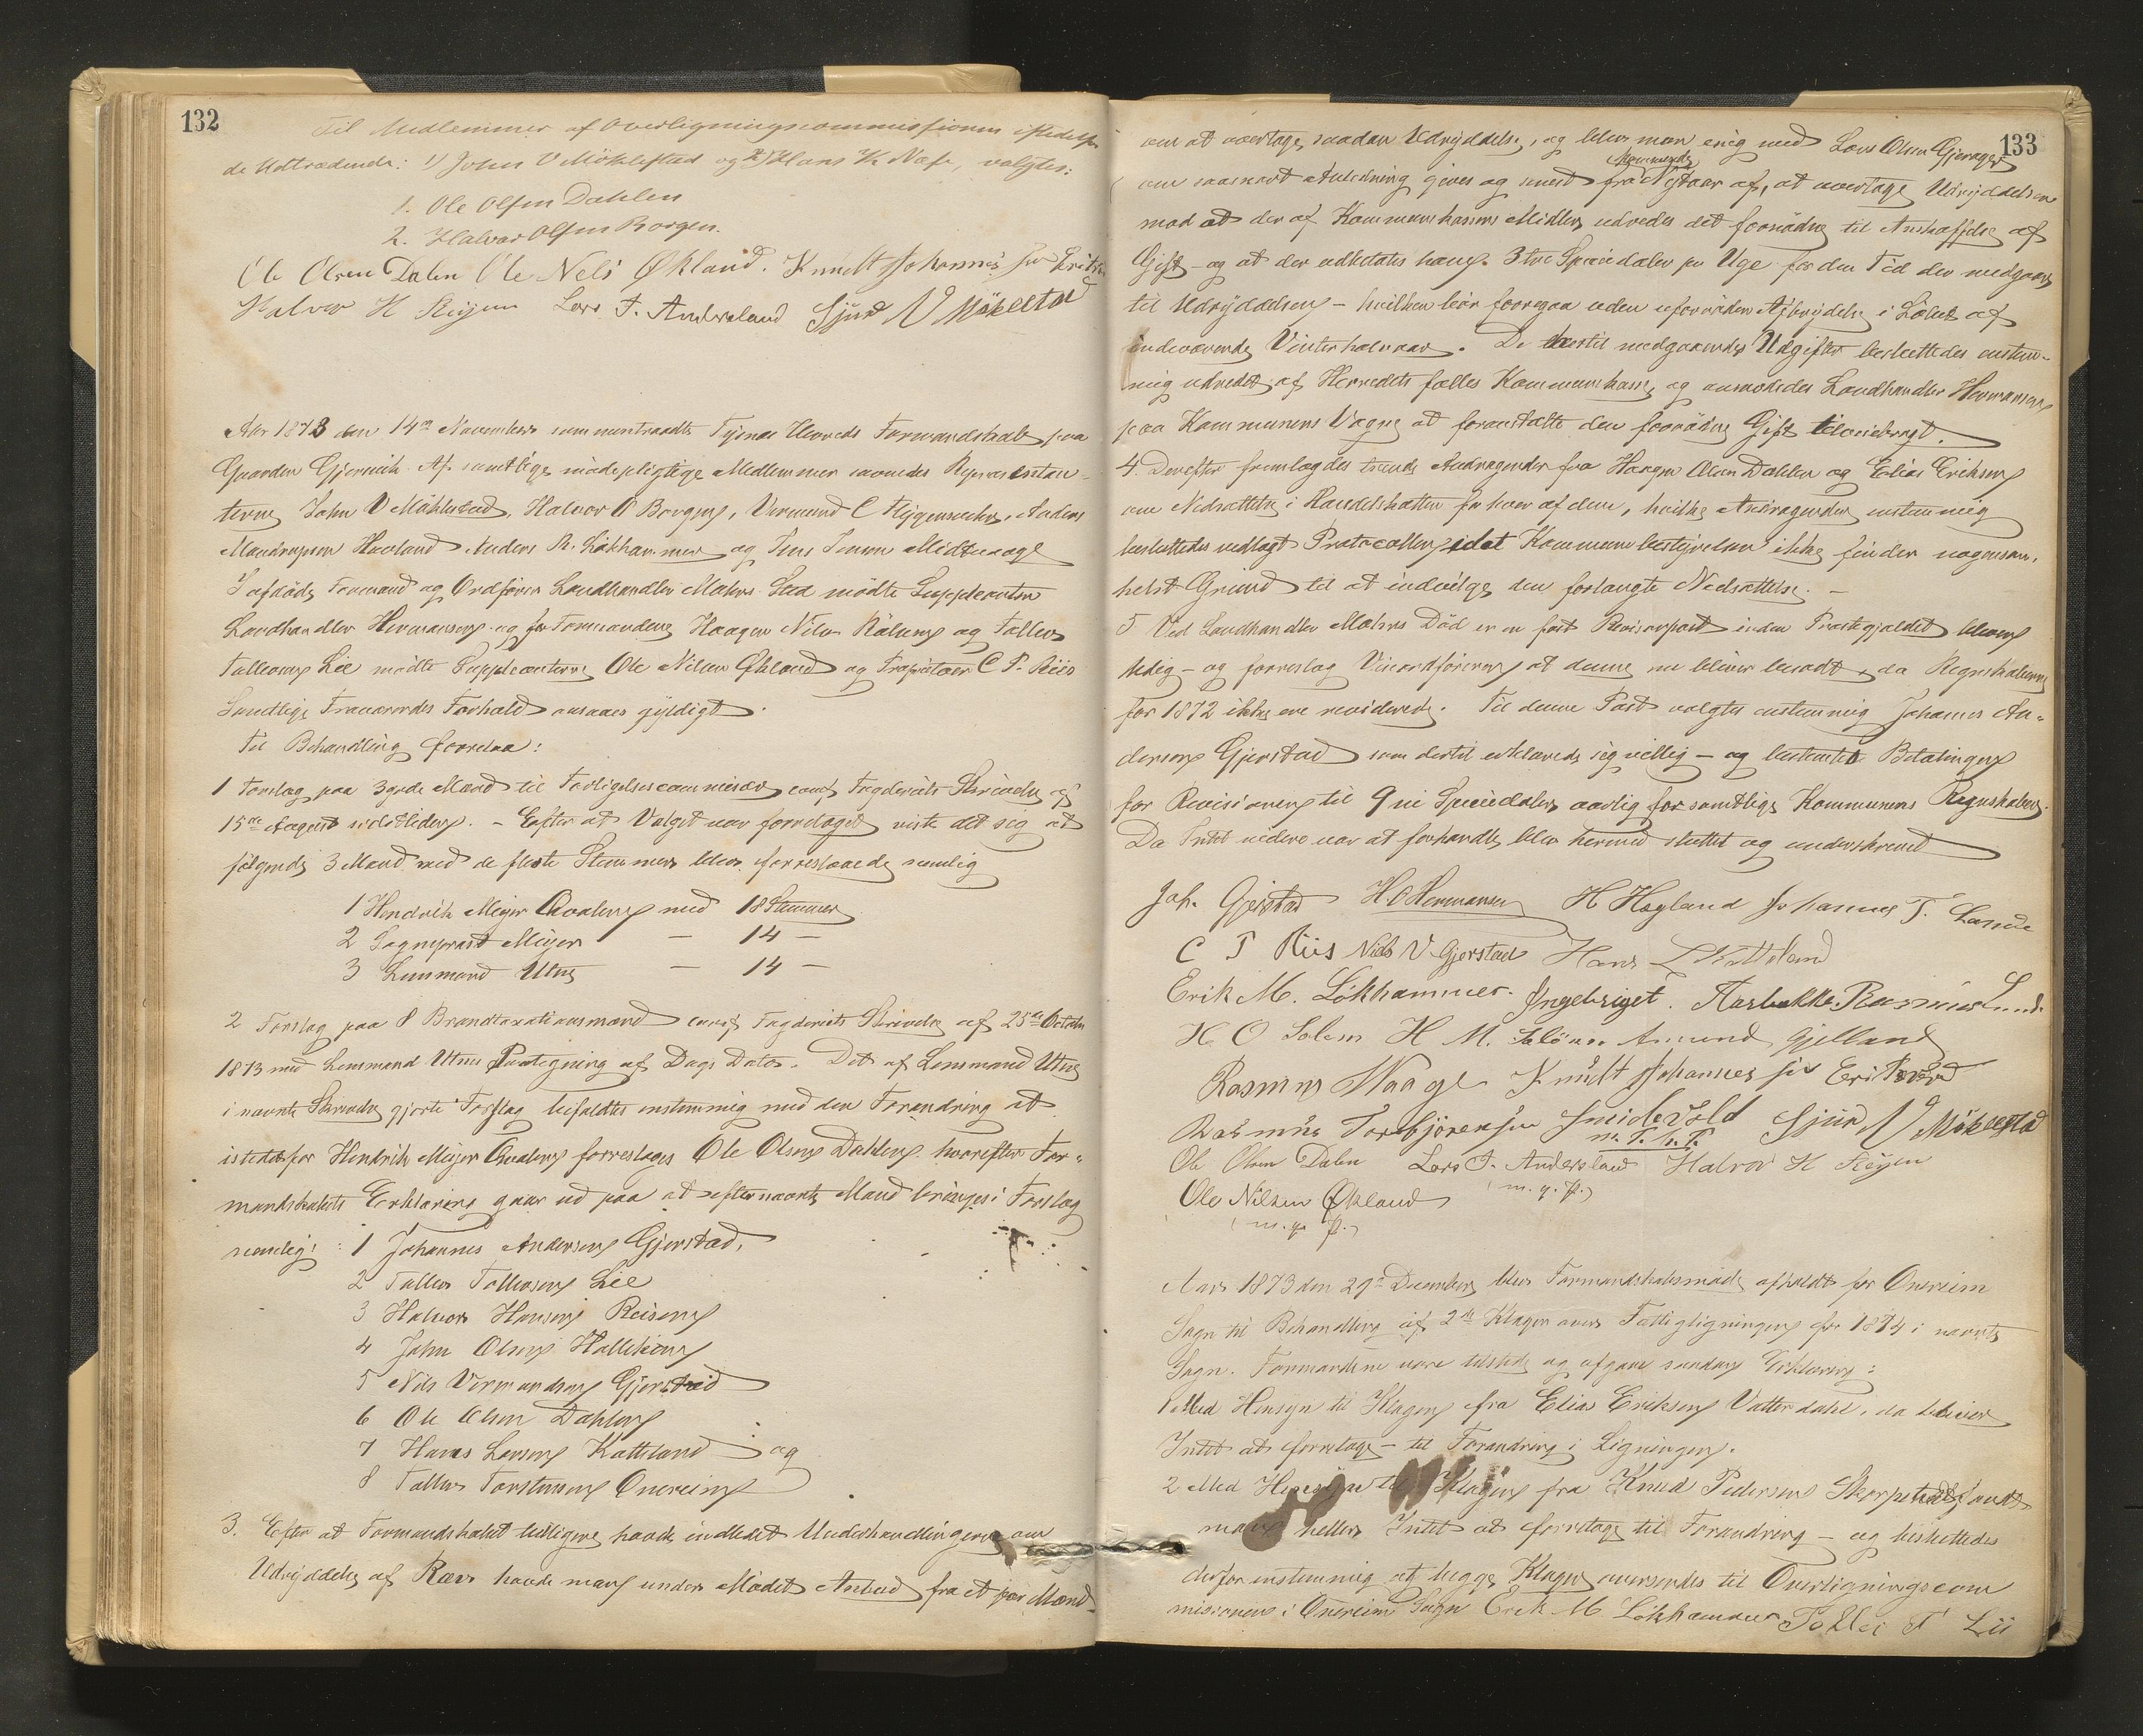 132
Til Medlemmer af Overligningscommissionen istedetfor
de Udtrædende: 1) John V Möklestad og 2) Hans K. Næse, valgtes:
1. Ole Olsen Dahlen
2. Halvor Olsen Borgen.
Ole Olsen Dalen Ole Nels Økland. Knudt Johannes søn
Halvor H Reisen Lars J. Andersland Sjur N Mökelstad
Aar 1873 den 14de November sammentraadte Tysnæs Herreds Formandskab paa
Gaarden Gjersvik. Af samtlige mödepligtige Medlemmer savnedes Repræsentan-
terne John V Möklestad, Halvor O Borgen, Vermund C Anders
Haaland Anders R. Lökhammer og Tens Tensen Midtvaage
I afdöde Formand og Ordförer Landhandler Mohns Sted mödte Suppleanten
Landhandler Hermansen og for Formændene Haagen Nilsen og Tollev
Tollevsen Lie mödte Suppleanterne Ole Nilsen Økland og Proprietær C T. Riis
Samtlige Fraværendes Forhold ansaaes gyldigt.
Til Behandling forelaa:
1 Forslag paa 3 gode Mænd til Forligelsescommissær conf Fogderiets Skrivelse af
15de August sidstleden. – Efter at Valget var foretaget viste det sig at
følgende 3 Mænd med de fleste Stemmer blev foreslaaede nemlig
1 Hendrik Meyer Qvalen med 18 Stemmer
2 Sognepræst Meyer — 14 —
3 Lensmand Utne — 14 —
2 Forslag paa 8 Brandtaxationsmænd conf Fogderiets Skrivelse af 25de Octobr
1873 med Lensmand Utnes Paategning af Dags Dato. Det af Lensmand Utne
i nævnte Skrivelse gjorte Forslag bifaldtes enstemmig med den Forandring at
istedetfor Hendrik Meyer Qvalen foreslages Ole Olsen Dahlen hvorefter For-
mandskabets Erklæring gaar ud paa at efternævnte Mænd bringes i Forslag
nemlig: 1 Johannes Andersen Gjerstad,
2 Tollev Tollevsen Lie
3 Halvor Hansen Reisen
4 John Olsen
5 Nils Vermundsen Gjerstad
6 Ole Olsen Dahlen
7 Hans Larsen Kattland og
8 Tollev Torstensen Onereim
3. Efter at Formandskabet tidligere havde indledet Underhandlingerne om
Udryddelse af Ræv havde man under Mödet Anbud fra et par Mænd
133
om at overtage saadan Udryddelse, og blev man enig med Lars Olsen Gjerager
om saasnart Anledning gives og senest fra Nytaar af, at overtage Udryddelsen
mod at der af Kommunekassens Midler udredes det fornödne til Anskaffelse af
Gift – og at der udbetales ham 3 tre Speciedaler pr Uge for den Tid der medgaar
til Udryddelsen – hvilken bör foregaa uden ufornöden Afbrydelse i Löbet af
indeværende Vinterhalvaar. De dertil medgaaende Udgifter besluttedes enstem-
mig udredet af Herredets fælles Kommunekasse, og anmodedes Landhandler Hermansen
paa Kommunens Vegne at foranstalte den fornödne Gift tilveiebragt.
4. Derefter fremlagdes tvende Andragender fra Haagen Olsen Dahlen og Elias Eriksen
om Nedsættelse i Handelsskatten for hver af dem, hvilke Andragender enstemmig
besluttedes vedlagt Protocollen idet Kommunebestyrelsen ikke finder nogensom-
helst Grund til at indvilge den forlangte Nedsættelse. –
5 Ved Landhandler Mohns Död er en fast Revisorpost inden Præstegjældet bleven
ledig – og foreslog Viceordföreren at denne nu bliver besadt, da Regnskaberne
for 1872 ikke ere reviderede. Til denne Post valgtes enstemmig Johannes An-
dersen Gjerstad som dertil erklærede sig villig – og besluttet Betalingen
for Revisionen til 9 ni Speciedaler aarlig for samtlige Kommunens Regnskaber.
Da Intet videre var at forhandle blev hermed sluttet og underskrevet
Joh. Gjerstad H. O Hermansen H Hagland Johannes T. Lande
C T Riis Nils V Gjerstad Hans L Katteland
Erik M. Lökhammer. Ingebrigt. Aarbakke Rasmus Lund.
H. O Solem H M. Amund Gjelland
Rasmus Waage Knudt Johannes søn
Rasmus Torbjörensen Smidevold Sjur N Mökelstad
m. P. h. P.
Ole Olsen Dalen Lars J. Andersland Halvor H Reisen
(m. p. P.)
Ole Nilsen Økland
(m. p. P.)
Aar 1873 den 29de December blev Formandskabsmöde afholdt for Onereim
Sogn til Behandling af 2de Klager over Fattigligningen for 1874 i nævnte
Sogn. Formændene vare tilstede og afgave saadan Erklæring:
1 Med Hensyn til Klagen fra Elias Eriksen Vatterdahl, da bliver
Intet at foretage – til Forandring i Ligningen.
2 Med Hensyn til Klagen fra Knud Pedersen fandt
man heller Intet at foretage til Forandring – og besluttedes
derfor enstemmig at begge Klager oversendes til Overligningscom
missionen i Onereim Sogn Erik M Lökhammer Tollei T Lii